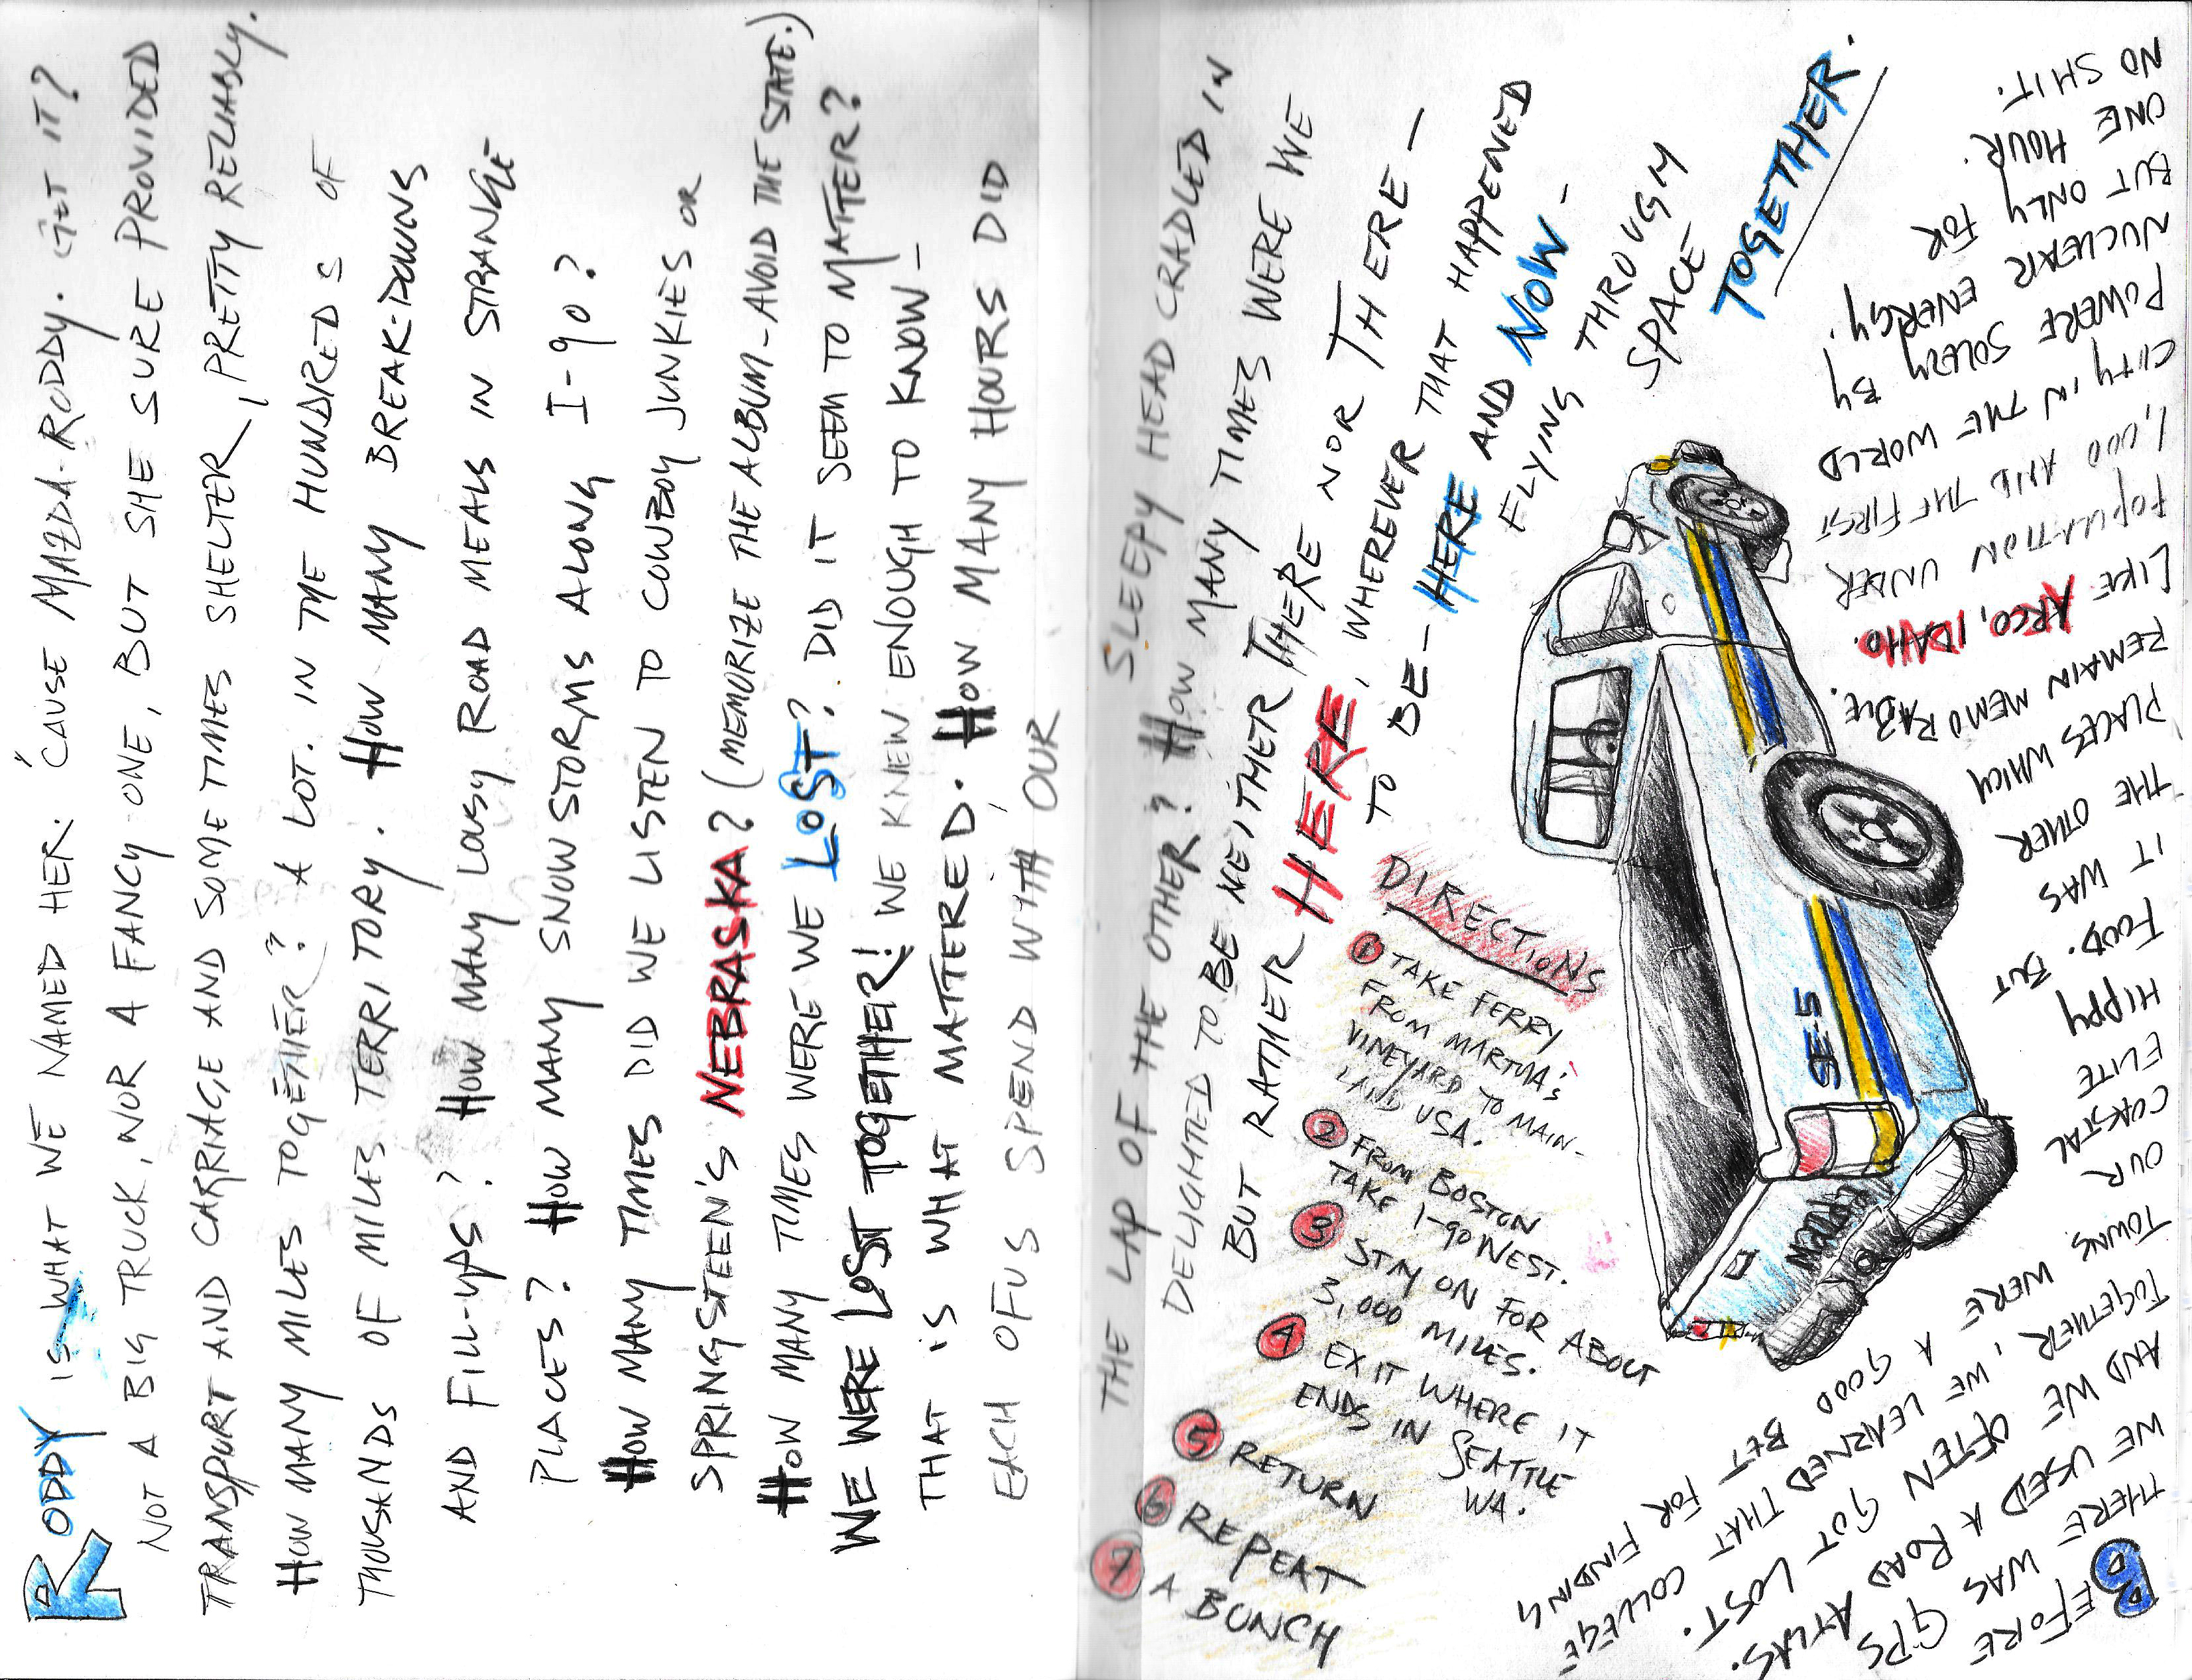 RODDY IS WHAT WE NAMED HER. 'CAUSE MAZDA-RODDY. GET IT?
NOT A BIG TRUCK, NOR A FANCY ONE, BUT SHE SURE PROVIDED
TRANSPORT AND CARRIAGE AND SOMETIMES SHELTER, PRETTY RELIABLY.
HOW MANY MILES TOGETHER? A LOT. IN THE HUNDREDS OF
THOUSANDS OF MILES TERRITORY. HOW MANY BREAK-DOWNS
AND FILL-UPS? HOW MANY LOUSY ROAD MEALS IN STRANGE
PLACES? HOW MANY SNOWSTORMS ALONG I-90?
HOW MANY TIMES DID WE LISTEN TO COWBOY JUNKIES OR
SPRINGSTEEN'S NEBRASKA? (MEMORIZE THE ALBUM-AVOID THE STATE.)
HOW MANY TIMES WERE WE LOST? DID IT SEEM TO MATTER?
WE WERE LOST TOGETHER! WE KNEW ENOUGH TO KNOW-
THAT IS WHAT MATTERED. HOW MANY HOURS DID
EACH OF US SPEND WITH OUR
SLEEPY HEAD CRADLED IN
THE LAP OF THE OTHER? HOW MANY TIMES WERE WE
DELIGHTED TO BE NEITHER THERE NOR THERE-
BUT RATHER HERE, WHEREVER THAT HAPPENED
TO BE- HERE AND NOW-
FLYING THROUGH
SPACE
TOGETHER.
DIRECTIONS
1 TAKE FERRY
FROM MARTHA'S
VINEYARD TO MAIN-
LAND USA.
2 FROM BOSTON
TAKE I-90 WEST.
3 STAY ON FOR ABOUT
3,000 MILES.
4 EXIT WHERE IT
ENDS IN SEATTLE
WA.
5 RETURN
6 REPEAT
7 A BUNCH
SE-5
BEFORE GPS
THERE WAS
WE USED A ROAD ATLAS.
AND WE OFTEN GOT LOST.
TOGETHER, WE LEARNED THAT COLLEGE
TOWNS WERE A GOOD BET FOR FINDING
OUR
COASTAL
ELITE
HIPPY
FOOD. BUT
IT WAS
THE OTHER
PLACES WHICH
REMAIN MEMORABLE.
LIKE ARCO, IDAHO.
POPULATION UNDER
1,000 AND THE FIRST
CITY IN THE WORLD
POWERE SOLELY BY
NUCLEAR ENERGY.
BUT ONLY FOR
ONE HOUR.
NO SHIT.